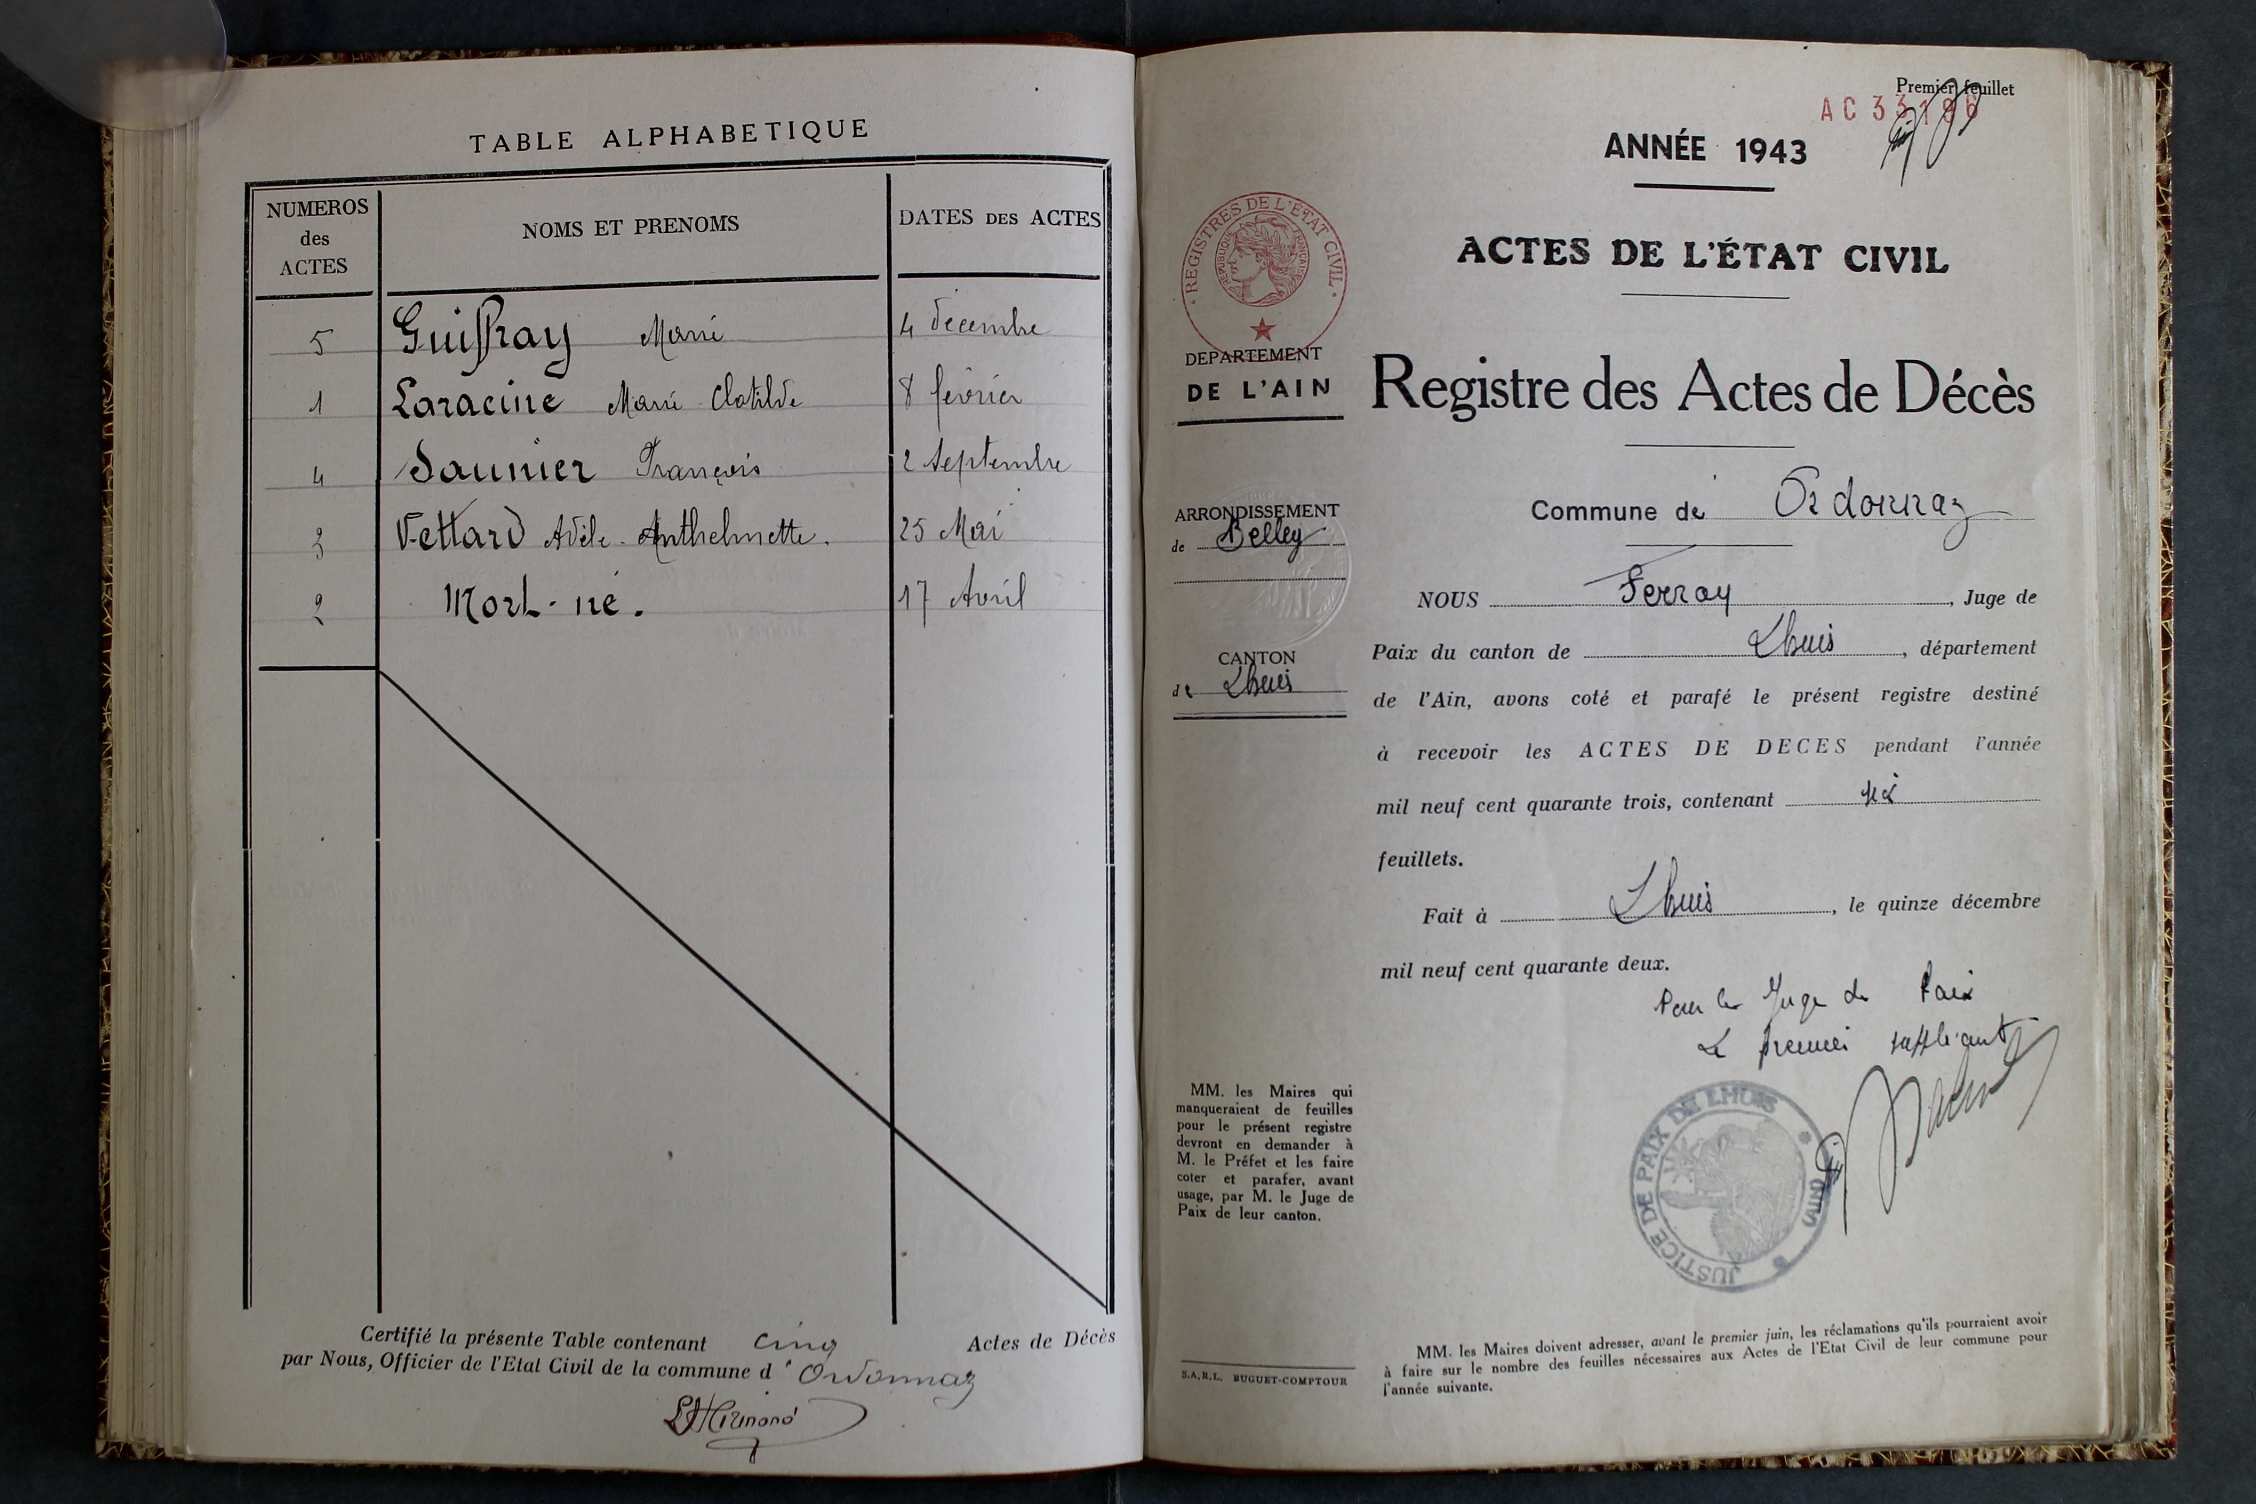 TABLE ALPHABETIQUE
NUMEROS des ACTES NOMS ET PRENOMS DATES DES ACTES
5 Guiffray Marie 4 décembre
1 Laracine Marie Clotilde 8 février
4 Saunier François 2 Septembre
3 Vettard Adèle Anthelmette. 25 Mai
2 Mort-né. 17 Avril
Certifié la présente Table contenant cinq Actes de Décès
par Nous, Officier de l'Etat Civil de la commune d'Ordonnaz
Premier feuillet
AC 33196
ANNÉE 1943
REGISTRES DE L'ETAT CIVIL
REPUBLIQUE FRANCAISE
ACTES DE L'ÉTAT CIVIL
DEPARTEMENT
DE L'AIN
Registre des Actes de Décès
ARRONDISSEMENT
de Belley
CANTON
de Lhuis
Commune de Ordonnaz
NOUS Ferray, Juge de
Paix du canton de Lhuis, département
de l'Ain, avons coté et parafé le présent registre destiné
à recevoir les ACTES DE DECES pendant l'année
mil neuf cent quarante trois, contenant six
feuillets.
Fait à Lhuis, le quinze décembre
mil neuf cent quarante deux.
Pour le Juge de Paix
Le premier suppléant
JUSTICE DE PAIX DE LHUIS (AIN)
MM. les Maires qui
manqueraient de feuilles
pour le présent registre
devront en demander à
M. le Préfet et les faire
coter et parafer, avant
usage, par M. le Juge de
Paix de leur canton.
S.A.R.L. BUGUET-COMPTOUR
MM. les Maires doivent adresser, avant le premier juin, les réclamations qu'ils pourraient avoir
à faire sur le nombre des feuilles nécessaires aux Actes de l'Etat Civil de leur commune pour
l'année suivante.